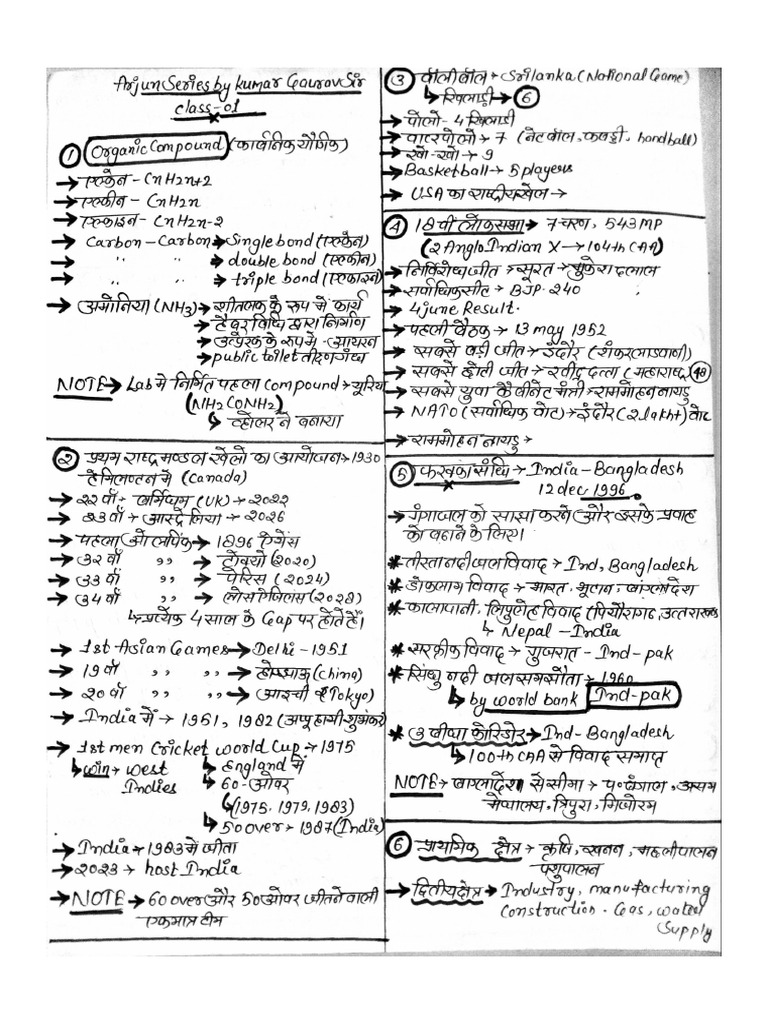 Arjun Series by Kumar Gourav Sir
class-01
① Organic Compound (कार्बनिक यौगिक)
→ एल्केन- CnH2n+2
→ एल्कीन- CnH2n
→ एल्काइन- CnH2n-2
→ Carbon-Carbon → Single bond (एल्केन)
→ " " → double bond (एल्कीन)
→ " " → triple bond (एल्काइन)
→ अमोनिया (NH3) → शीतलक के रूप में कार्य
→ हैबर विधि द्वारा निर्माण
→ उत्प्रेरक के रूप मे - आयरन
→ public toilet तीक्ष्ण गंध
NOTE → Lab मे निर्मित पहला compound → यूरिया
(NH2CONH2)
↳ व्होलर ने बनाया
② प्रथम राष्ट्रमण्डल खेलो का आयोजन → 1930
हेमिल्टन में (Canada)
→ 22वाँ → बर्मिंघम (UK) → 2022
→ 23वाँ → आस्ट्रेलिया → 2026
→ पहला ओलंपिक → 1896 एथेंस
→ 32वाँ " → टोक्यो (2020)
→ 33वाँ " → पेरिस (2024)
→ 34वाँ " → लॉस एंजिलिस (2028)
↳ प्रत्येक 4 साल के Gap पर होते हैं।
→ 1st Asian Games → Delhi - 1951
→ 19वाँ " " → होंगझाऊ (China)
→ 20वाँ " " → आइची (Tokyo)
→ India में → 1951, 1982 (अप्पू हाथी शुभंकर)
→ 1st men Cricket world Cup → 1975
↳ win → west Indies
↳ England में
↳ 60-ओवर
↳ (1975, 1979, 1983)
↳ 50 over → 1987 (India)
→ India → 1983 मे जीता
→ 2023 → host India
→ NOTE → 60 over और 50 ओवर जीतने वाली
एकमात्र टीम
③ वॉलीबॉल → Srilanka (National Game)
↳ खिलाड़ी → ⑥
→ पोलो - 4 खिलाडी
→ वाटरपोलो → 7 (नेटबॉल, कबड्डी, handball)
→ खो-खो → 9
→ Basketball → 5 players
→ USA का राष्ट्रीय खेल →
④ 18वी लोकसभा → 7 चरण, 543 MP
(2 Anglo Indian X → 104th CAA)
→ निर्विरोध जीत → सूरत → मुकेश दलाल
→ सर्वाधिक सीट → BJP- 240
→ 4 june Result.
→ पहली बैठक → 13 may 1952
→ सबसे बड़ी जीत → इंदौर (शंकर लालवानी)
→ सबसे छोटी जीत → रवींद्र दत्ता (महाराष्ट्र) 48
→ सबसे युवा कैबीनेट मंत्री → राममोहन नायडु
→ NATO (सर्वाधिक वोट) → इंदौर (2 lakh+) वोट
→ राममोहन नायडु →
⑤ फरक्का संधि → India - Bangladesh
12 dec 1996.
→ गंगाजल को साझा करने और उसके प्रवाह
को बढाने के लिए।
* तीस्ता नदी जल विवाद → Ind, Bangladesh
* डोकलाम विवाद → भारत, भूटान, बांग्लादेश
* कालापानी, लिपुलेख विवाद (पिथौरागढ, उत्तराखण्ड
↳ Nepal - India
* सरक्रीक विवाद → गुजरात - Ind - pak
* सिंधु नदी जल समझौता → 1960
↳ by world bank Ind-pak
* 3 बीघा कोरिडोर → Ind - Bangladesh
↳ 100th CAA मे विवाद समाप्त
NOTE → बांग्लादेश से सीमा → प० बंगाल, असम
मेघालय, त्रिपुरा, मिजोरम
⑥ प्राथमिक क्षेत्र → कृषि, खनन, मछलीपालन
पशुपालन
→ द्वितीय क्षेत्र → Industry, manufacturing
construction. Gas, water
Supply